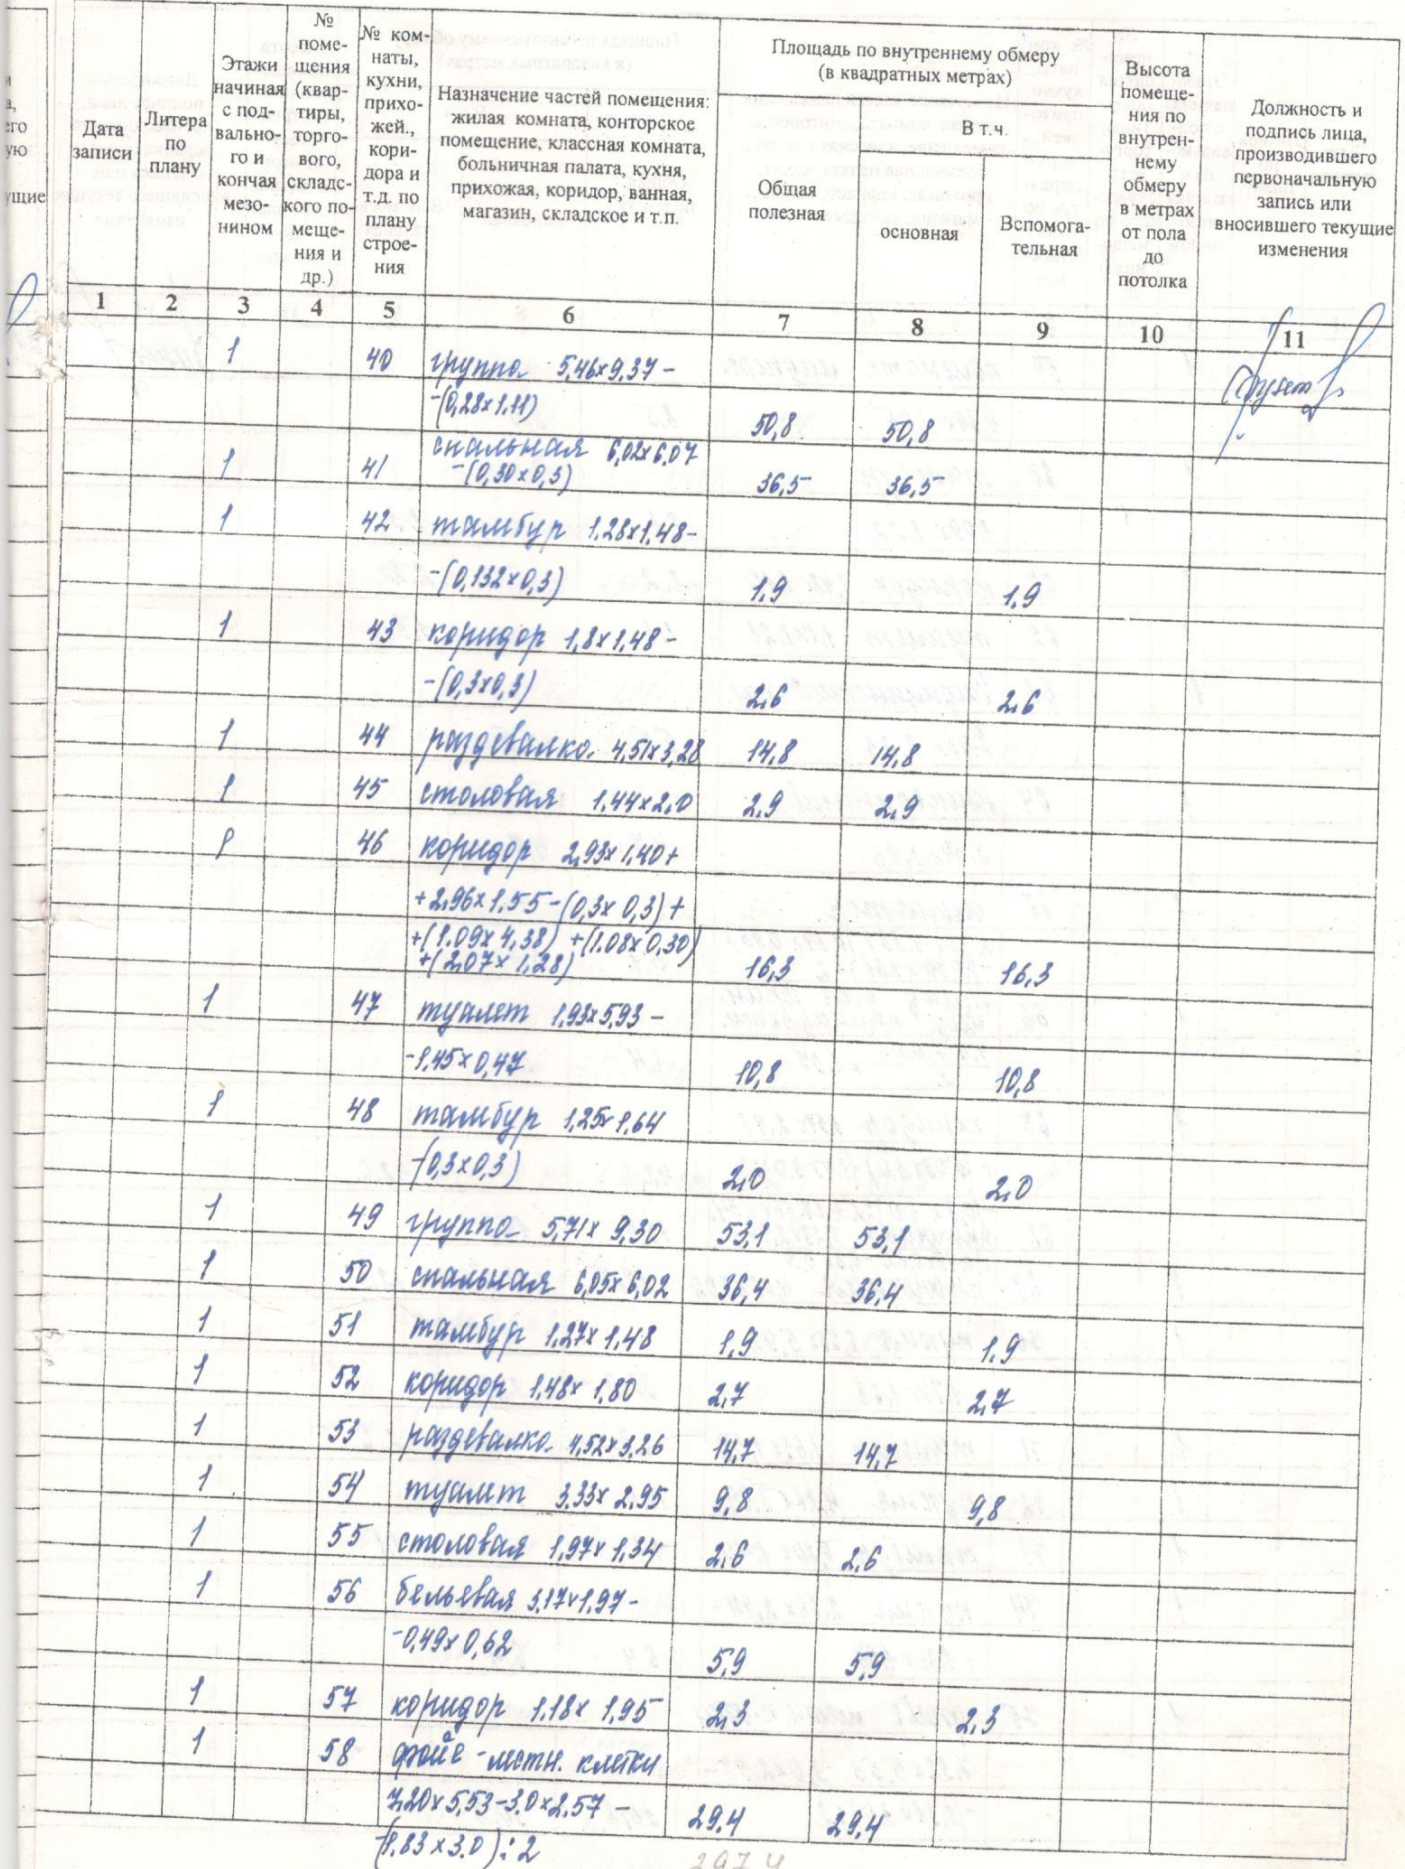 Дата записи
Литера по плану
Этажи начиная с под-вально-го и кончая мезо-нином
№ поме-щения (квар-тиры, торго-вого, складс-кого по-меще-ния и др.)
№ ком-наты, кухни, прихо-жей., кори-дора и т.д. по плану строе-ния
Назначение частей помещения: жилая комната, конторское помещение, классная комната, больничная палата, кухня, прихожая, коридор, ванная, магазин, складское и т.п.
Площадь по внутреннему обмеру (в квадратных метрах)
Общая полезная
В т.ч.
основная
Вспомога-тельная
Высота помеще-ния по внутрен-нему обмеру в метрах от пола до потолка
Должность и подпись лица, производившего первоначальную запись или вносившего текущие изменения
1 2 3 4 5 6 7 8 9 10 11
1 40 группа 5,46x9,37-
-(0,28x1.11) 50,8 50,8
1 41 спальная 6,02x6,07
-(0,30x0,3) 36,5 36,5
1 42 тамбур 1.28x1.48-
-(0,132x0,3) 1.9 1.9
1 43 коридор 1,8x1,48-
-(0,3x0,3) 2,6 2,6
1 44 раздевалка 4,51x3,28 14,8 14,8
1 45 столовая 1,44x2,0 2,9 2,9
1 46 коридор 2,93x1,40+
+2,96x1,55-(0,3x0,3)+
+(1.09x4,38)+(1.08x0,30)
+(2,07x1,28) 16,3 16,3
1 47 туалет 1,93x5,93-
-1,45x0,47 10,8 10,8
1 48 тамбур 1,25x1,64
-(0,3x0,3) 2,0 2,0
1 49 группа 5,71x9,30 53,1 53,1
1 50 спальная 6,05x6,02 36,4 36,4
1 51 тамбур 1,27x1,48 1,9 1,9
1 52 коридор 1,48x1,80 2,7 2,7
1 53 раздевалка 4,52x3,26 14,7 14,7
1 54 туалет 3,33x2,95 9,8 9,8
1 55 столовая 1,97x1,34 2,6 2,6
1 56 бельевая 3,17x1,97-
-0,49x0,62 5,9 5,9
1 57 коридор 1,18x1,95 2,3 2,3
1 58 фойе-лестн. клетки
7,20x5,53-3,0x2,57- 29,4 29,4
(1.83x3.0):2